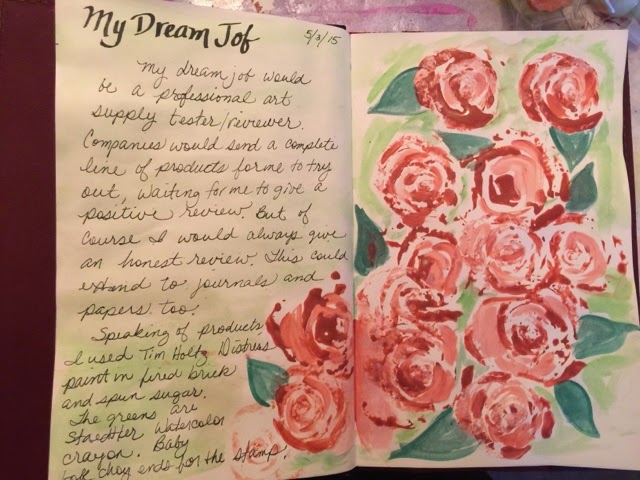 My Dream Jof
5/3/15
My dream job would
be a professional art
supply tester/reviewer.
Companies would send a complete
line of products for me to try
out, waiting for me to give a
positive review. But of
course I would always give
an honest review. This could
extend to journals and
papers too!
Speaking of products
I used Tim Holtz Distress
paint in fired brick
and spun sugar.
The greens are
Staedtler watercolor
crayon. Baby
bok choy ends for the stamp.